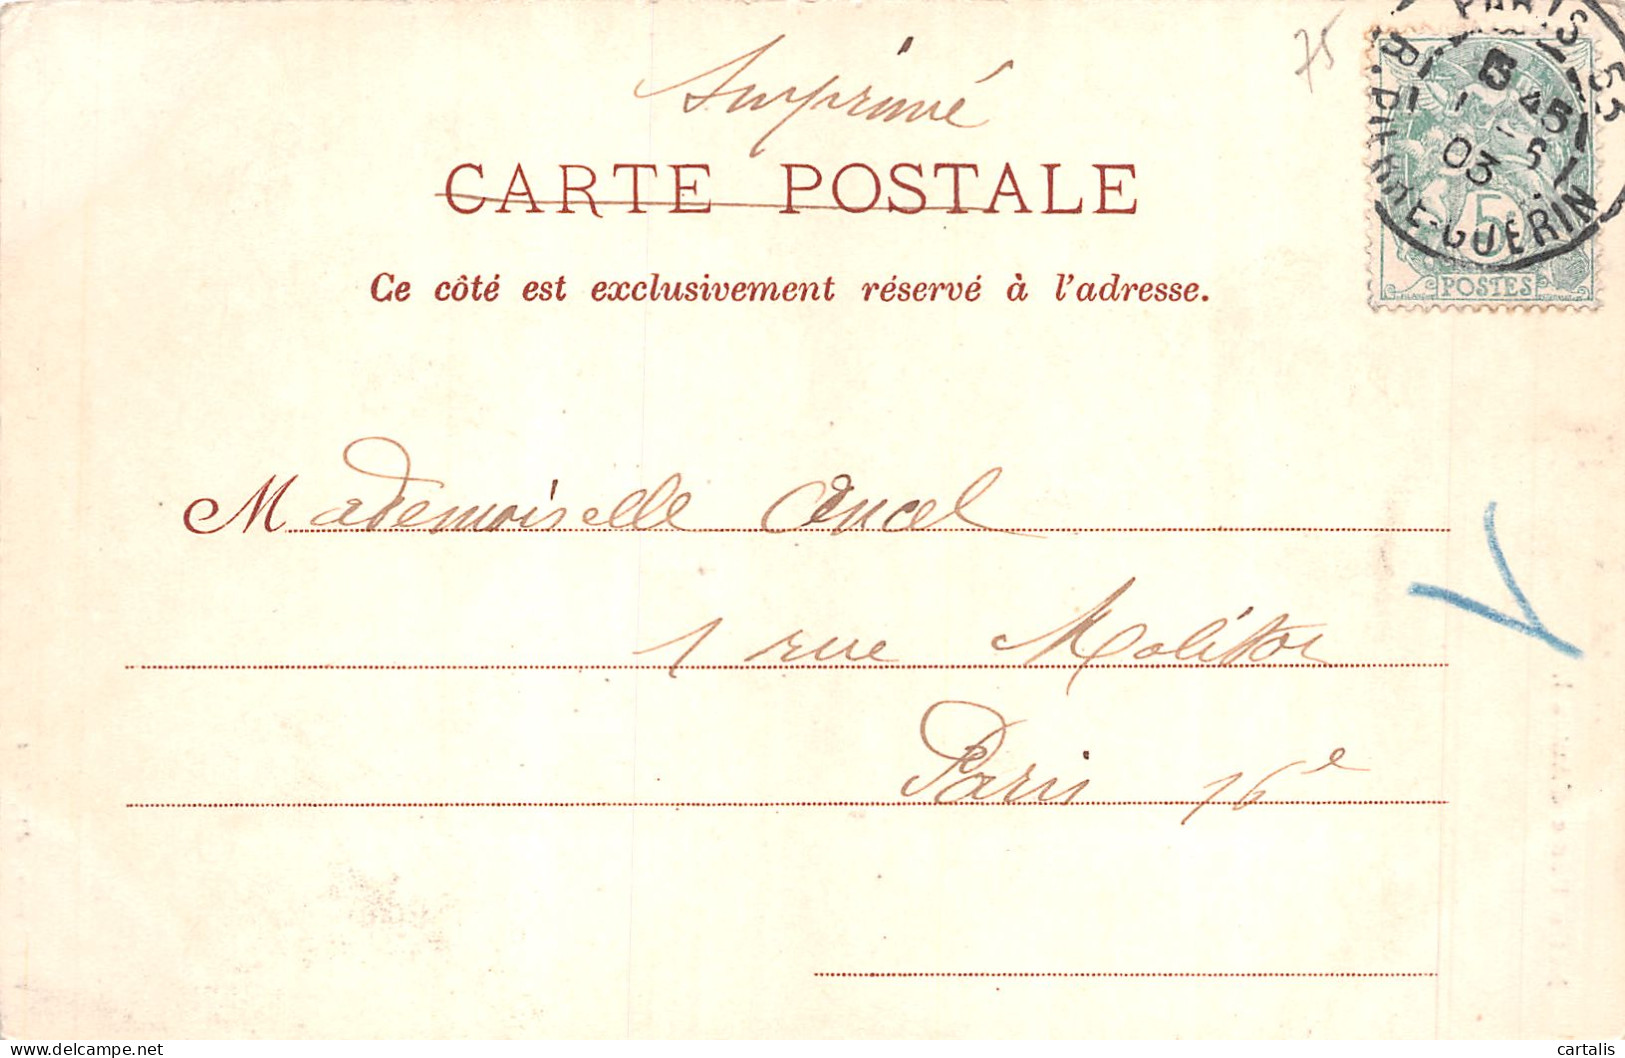 Imprimé
75
CARTE POSTALE
Ce côté est exclusivement réservé à l'adresse.
PARIS 55
R. PIERRE-GUÉRIN
03
5
POSTES
Mademoiselle Ancel
1 rue Molitor
Paris 16e
cartalis
delcampe.net